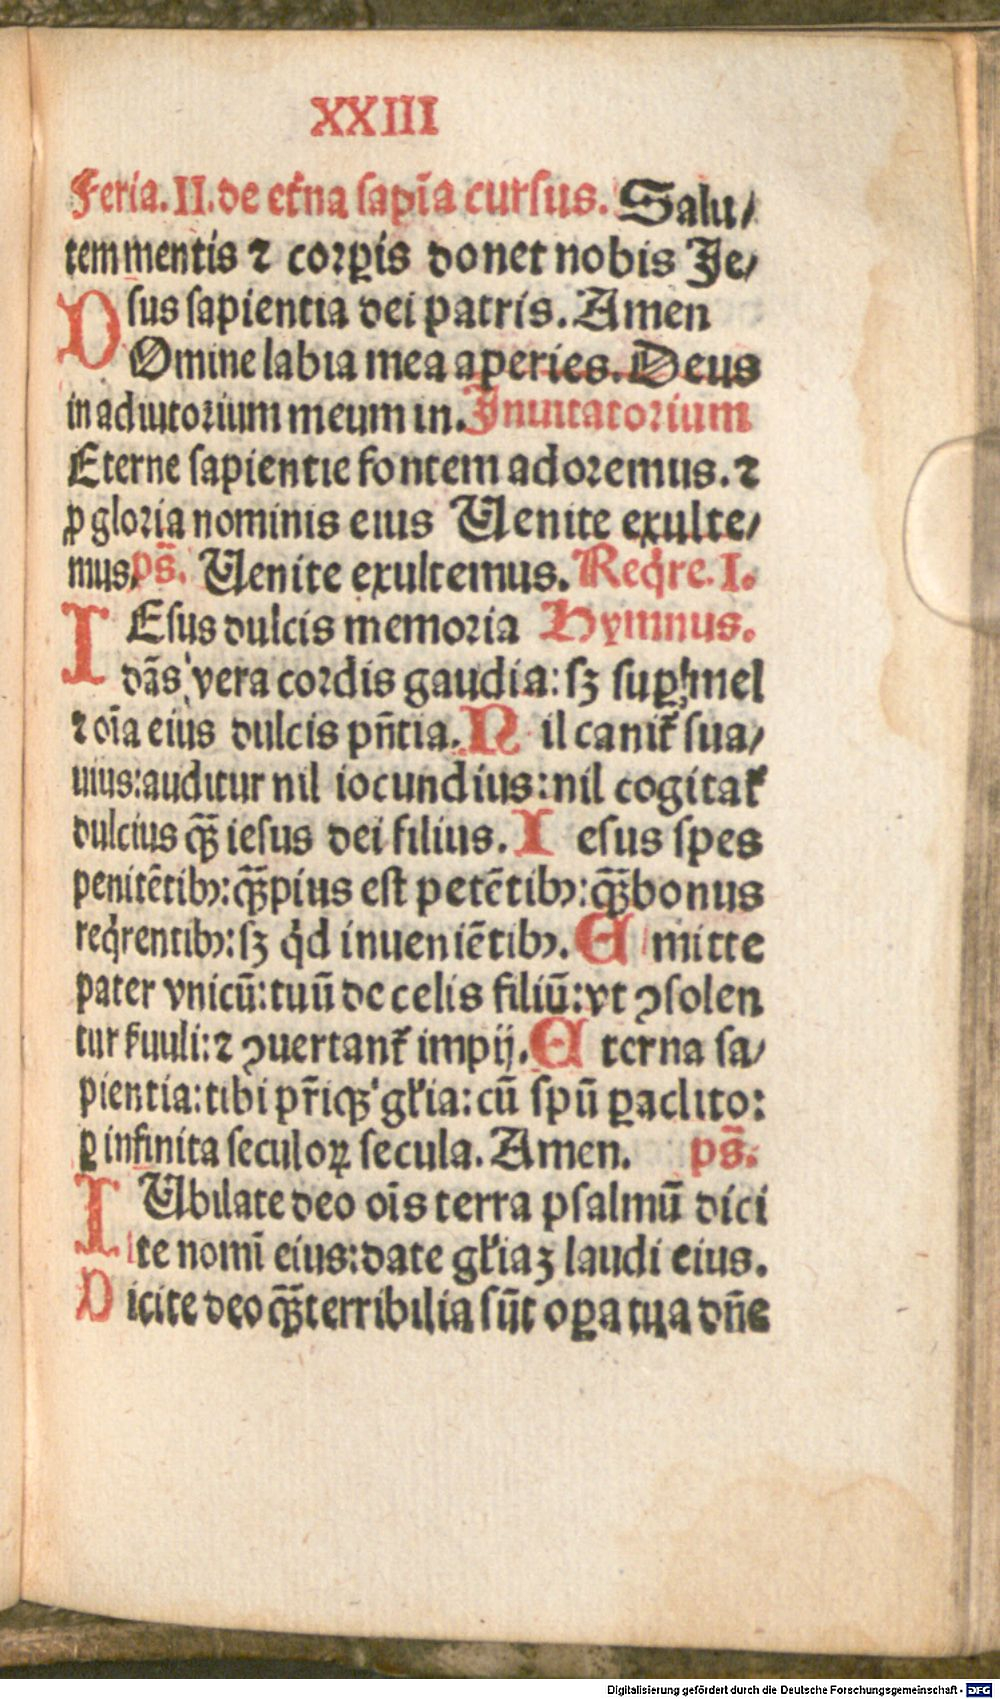 XXIII
Feria. II. de et̉na sapīa cursus. Salu/
tem mentis ⁊ corꝑis donet nobis Je/
sus sapientia dei patris. Amen
DOmine labia mea aperies. Deus
in adiutorium meum in. Inuitatorium
Eterne sapientie fontem adoremus. ⁊
ꝓ gloria nominis eius Uenite exulte/
mus. ps̄. Uenite exultemus. Reqͥre. I.
IEsus dulcis memoria Hymnus.
dās vera cordis gaudia: sꝫ suꝑ mel
⁊ oīa eius dulcis pn̄tia. Nil canit̉ sua/
uius: auditur nil iocundius: nil cogitat̉
dulcius qͣꝫ iesus dei filius. Iesus spes
penitētibꝰ: qͣꝫ pius est petētibꝰ: qͣꝫ bonus
reqͥrentibꝰ: sꝫ qͥd inueniētibꝰ. Emitte
pater vnicū: tuū de celis filiū: vt ꝯsolen
tur ẜuuli: ⁊ ꝯuertant̉ impij. Eterna sa/
pientia: tibi pr̄iqꝫ gl̉ia: cū spū ꝑaclito:
ꝑ infinita seculoꝝ secula. Amen. ps̄.
IUbilate deo oīs terra psalmū dici
te nomī eius: date gl̉iaꝫ laudi eius.
Dicite deo qͣꝫ terribilia sūt oꝑa tua dn̄e
Digitalisierung gefördert durch die Deutsche Forschungsgemeinschaft - DFG